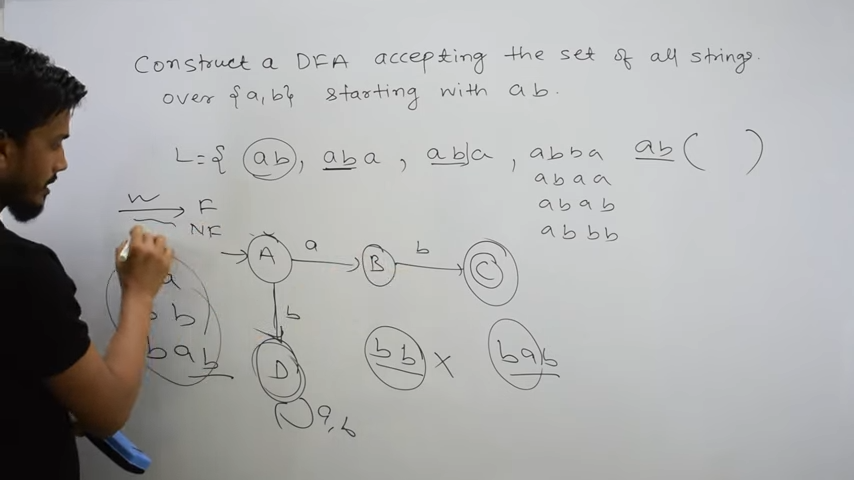 Construct a DFA accepting the set of all strings.
over {a,b} starting with ab.
L={ ab, aba, ab|a, abba ab( )
abaa
abab
abbb
W F
NF
A a B b C
a
b
b
bab
D
bb X bab
a,b